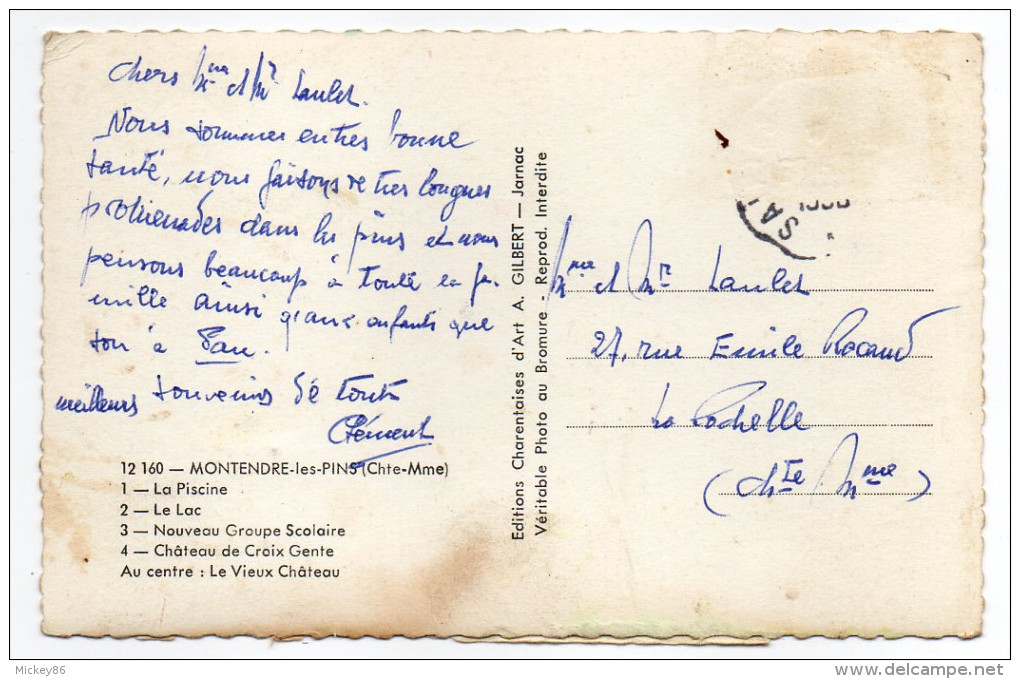 Chers Mme et Mr Laulet.
Nous sommes en très bonne
santé, nous faisons de très longues
promenades dans les pins et nous
pensons beaucoup à toute la fa-
mille ainsi qu'aux enfants que
son à Pau.
meilleurs souvenirs de tous
Clément
12 160 — MONTENDRE-les-PINS (Chte-Mme)
1 — La Piscine
2 — Le Lac
3 — Nouveau Groupe Scolaire
4 — Château de Croix Gente
Au centre : Le Vieux Château
Editions Charentaises d'Art A. GILBERT — Jarnac
Véritable Photo au Bromure - Reprod. Interdite
SA
Mme et Mr Laulet
27, rue Emile
La Rochelle
(Chte Mme)
Mickey86
delcampe.net